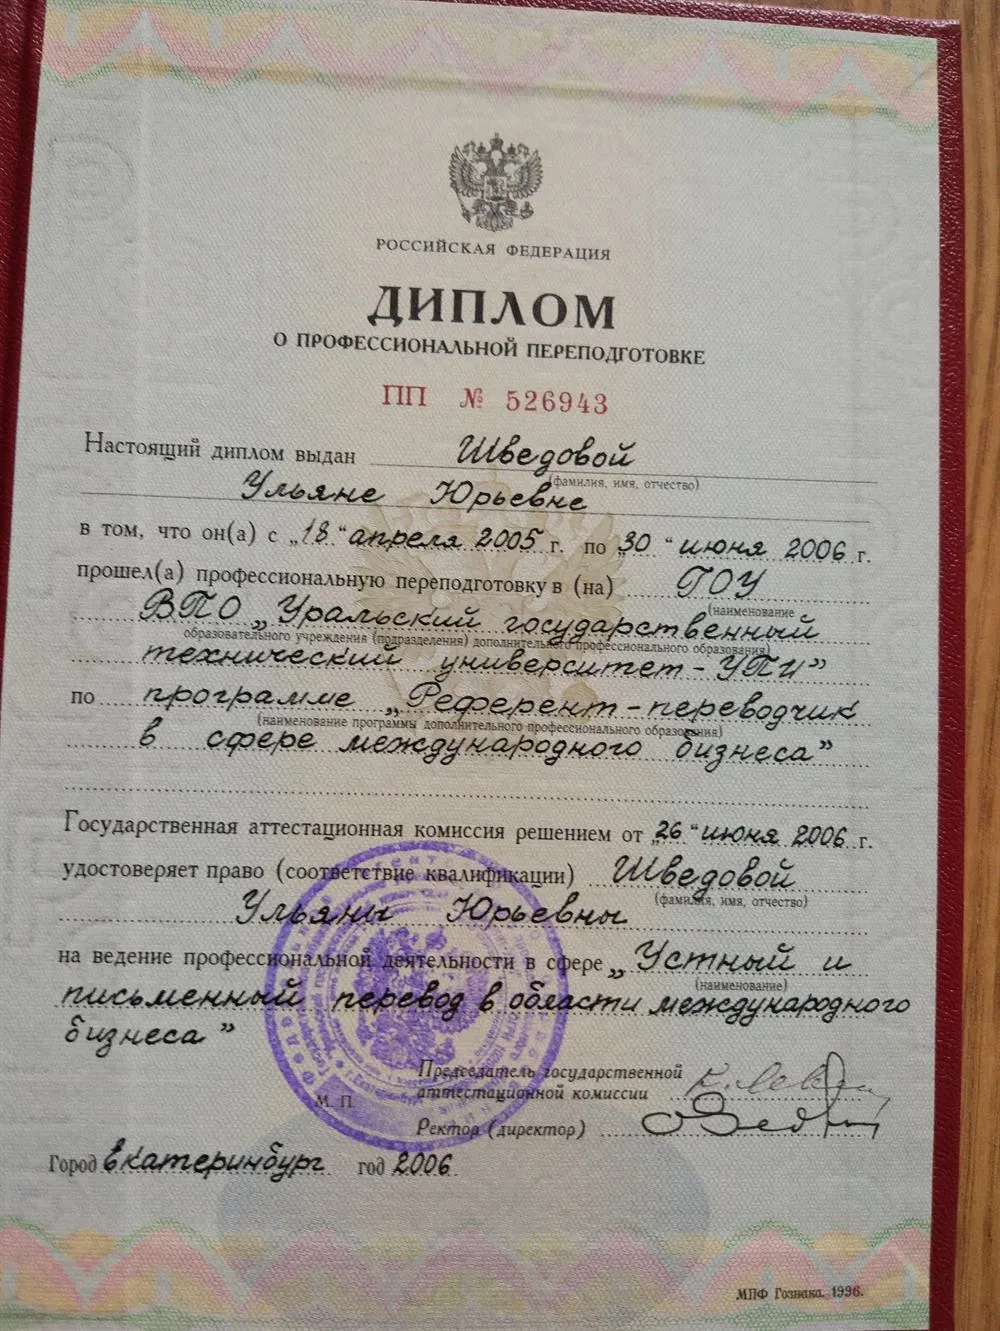 РОССИЙСКАЯ ФЕДЕРАЦИЯ
ДИПЛОМ
О ПРОФЕССИОНАЛЬНОЙ ПЕРЕПОДГОТОВКЕ
ПП № 526943
Настоящий диплом выдан Шведовой
(фамилия, имя, отчество)
Ульяне Юрьевне
в том, что он(а) с „18“ апреля 2005 г. по „30“ июня 2006 г.
прошел(а) профессиональную переподготовку в (на) ГОУ
(наименование
ВПО „Уральский государственный
образовательного учреждения (подразделения) дополнительного профессионального образования)
технический университет-УПИ”
по программе „Референт-переводчик
(наименование программы дополнительного профессионального образования)
в сфере международного бизнеса”
Государственная аттестационная комиссия решением от „26“ июня 2006 г.
удостоверяет право (соответствие квалификации) Шведовой
(фамилия, имя, отчество)
Ульяны Юрьевны
на ведение профессиональной деятельности в сфере „Устный и
(наименование)
письменный перевод в области международного
бизнеса”
Председатель государственной
аттестационной комиссии
М. П.
Ректор (директор)
Город Екатеринбург год 2006
МПФ Гознака. 1996.